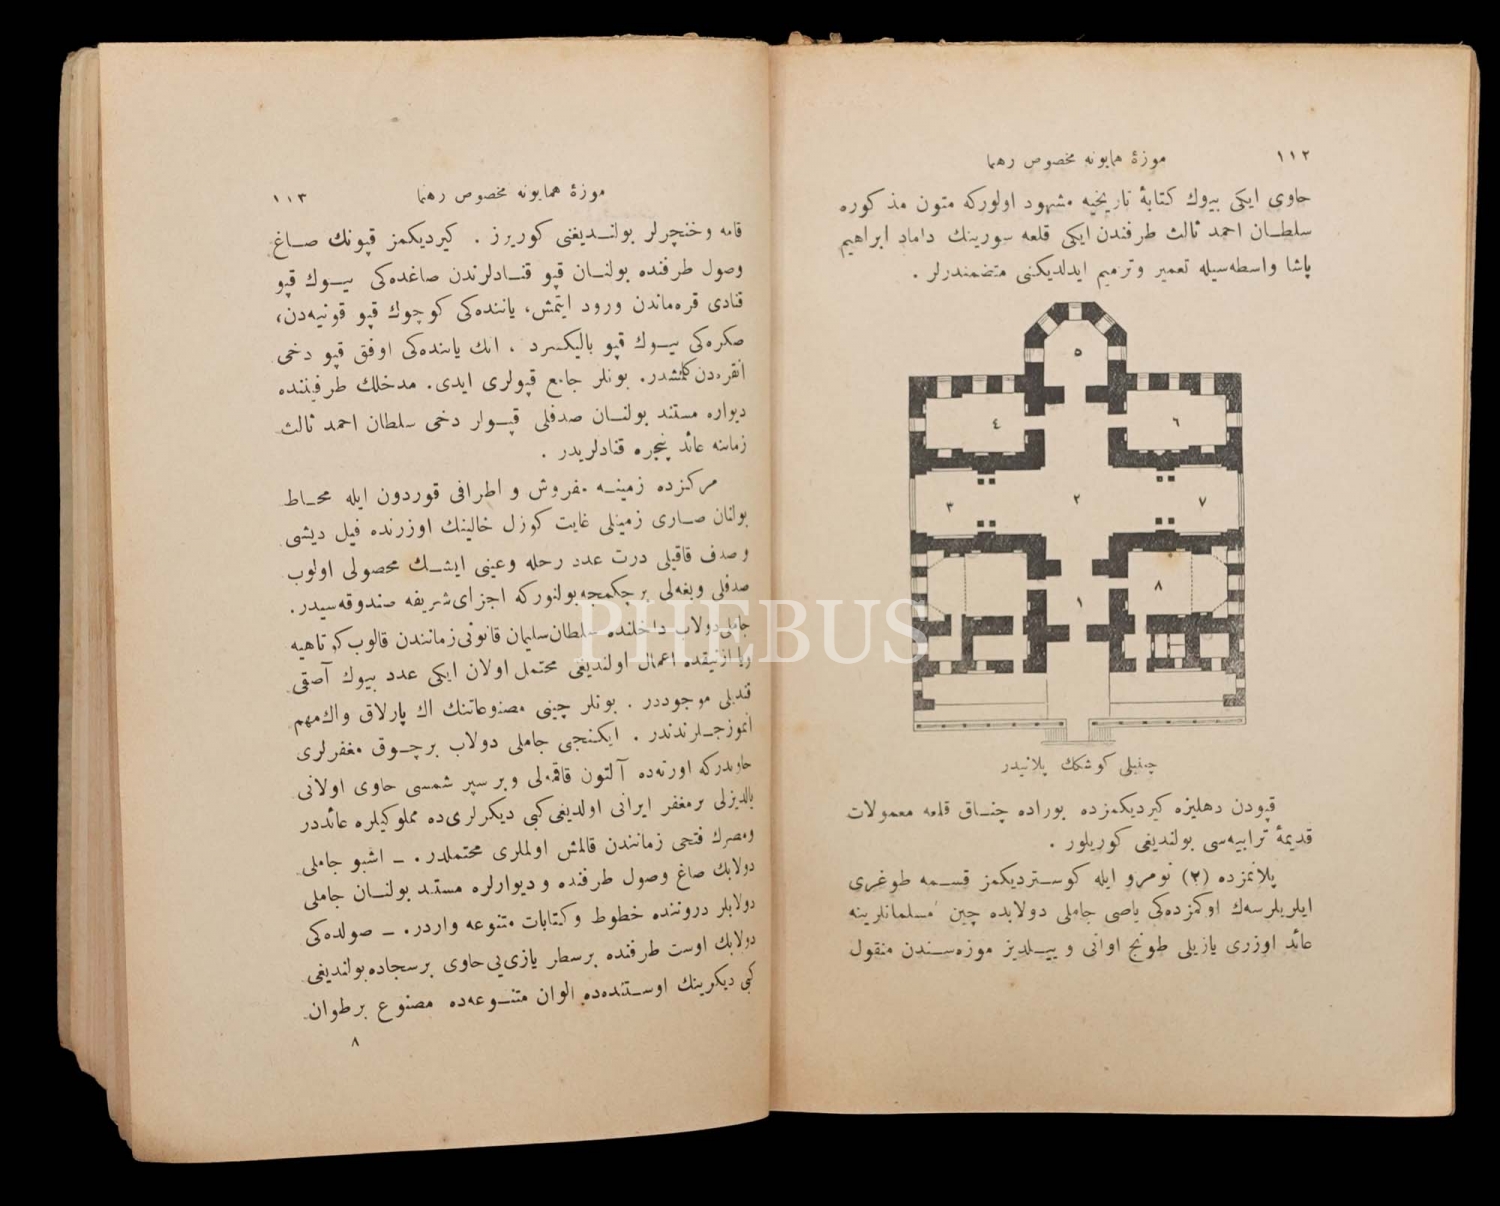 ١١٢
موزۀ همایونه مخصوص رهنما
حاوی ایکی بیوك کتابۀ تاریخیه مشهود اولورکه متون مذکوره
سلطان احمد ثالث طرفندن ایکی قلعه سورینك داماد ابراهیم
پاشا واسطه‌سیله تعمیر وترمیم ایدلدیکنی متضمندرلر .
٥
٤
٦
٣
٢
٧
٨
١
چنیلی کوشكك پلانیدر
قپودن دهلیزه کیردیکمزده بوراده چناق قلعه معمولات
قدیمۀ ترابیه‌سی بولندیغی کوریلور .
پلانمزده (٢) نومرو ایله کوستردیکمز قسمه طوغری
ایلریلرسه‌ك اوکمزده‌کی یاصی جاملی دولابده چین مسلمانلرینه
عائد اوزری یازیلی طونج اوانی و ییلدیز موزه‌سندن منقول
١١٣
موزۀ همایونه مخصوص رهنما
قامه وخنچرلر بولندیغنی کوریرز . کیردیکمز قپونك صاغ
وصول طرفنده بولنان قپو قنادلرندن صاغده‌کی بیوك قپو
قنادی قره‌ماندن ورود ایتمش، یاننده‌کی کوچوك قپو قونیه‌دن،
صکره‌کی بیوك قپو بالیکسرد ، انك یاننده‌کی اوفق قپو دخی
انقره‌دن کلمشدر. بونلر جامع قپولری ایدی. مدخلك طرفیننده
دیواره مستند بولنان صدفلی قپولر دخی سلطان احمد ثالث
زماننه عائد پنجره قنادلریدر .
مرکزده زمینه مفروش و اطرافی قوردون ایله محاط
بولنان صاری زمینلی غایت کوزل خالینك اوزرنده فیل دیشی
وصدف قاقیلی درت عدد رحله وعینی ایشك محصولی اولوب
صدفلی وبغه‌لی بر چکمجه بولنورکه اجزای شریفه صندوقه‌سیدر.
جاملی دولاب داخلنده سلطان سلیمان قانونی زمانندن قالوب کوتاهیه
ویا ازنیقده اعمال اولندیغی محتمل اولان ایکی عدد بیوك آصقی
قندیلی موجوددر . بونلر چینی مصنوعاتنك اك پارلاق واك مهم
انموزجلرندندر . ایکنجی جاملی دولاب برچوق مغفرلری
حاویدرکه اورته‌ده آلتون قاقمه‌لی وبر سپر شمسی حاوی اولانی
یالدیزلی برمغفر ایرانی اولدیغی کبی دیکرلری‌ده مملوکیلره عائددر
ومصرك فتحی زمانندن قالمش اولملری محتملدر. ــ اشبو جاملی
دولابك صاغ وصول طرفنده و دیوارلره مستند بولنان جاملی
دولابلر دروننده خطوط وکتابات متنوعه واردر. ــ صولده‌کی
دولابك اوست طرفنده برسطر یازی‌یی حاوی برسجاده بولندیغی
کبی دیکرینك اوستنده‌ده الوان متنوعه‌ده مصنوع برطوان
٨
PHEBUS